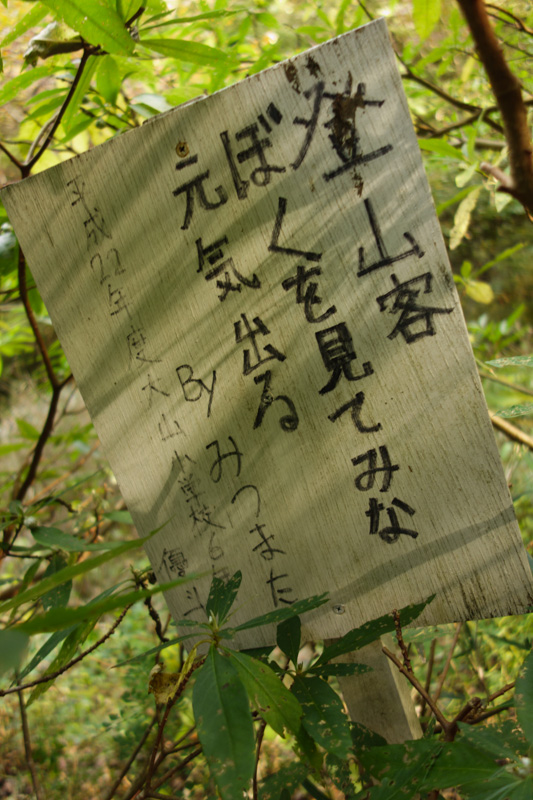 登山客
ぼくを見てみな
元気出る
By みつまた
平成22年度大山小学校6年
優斗